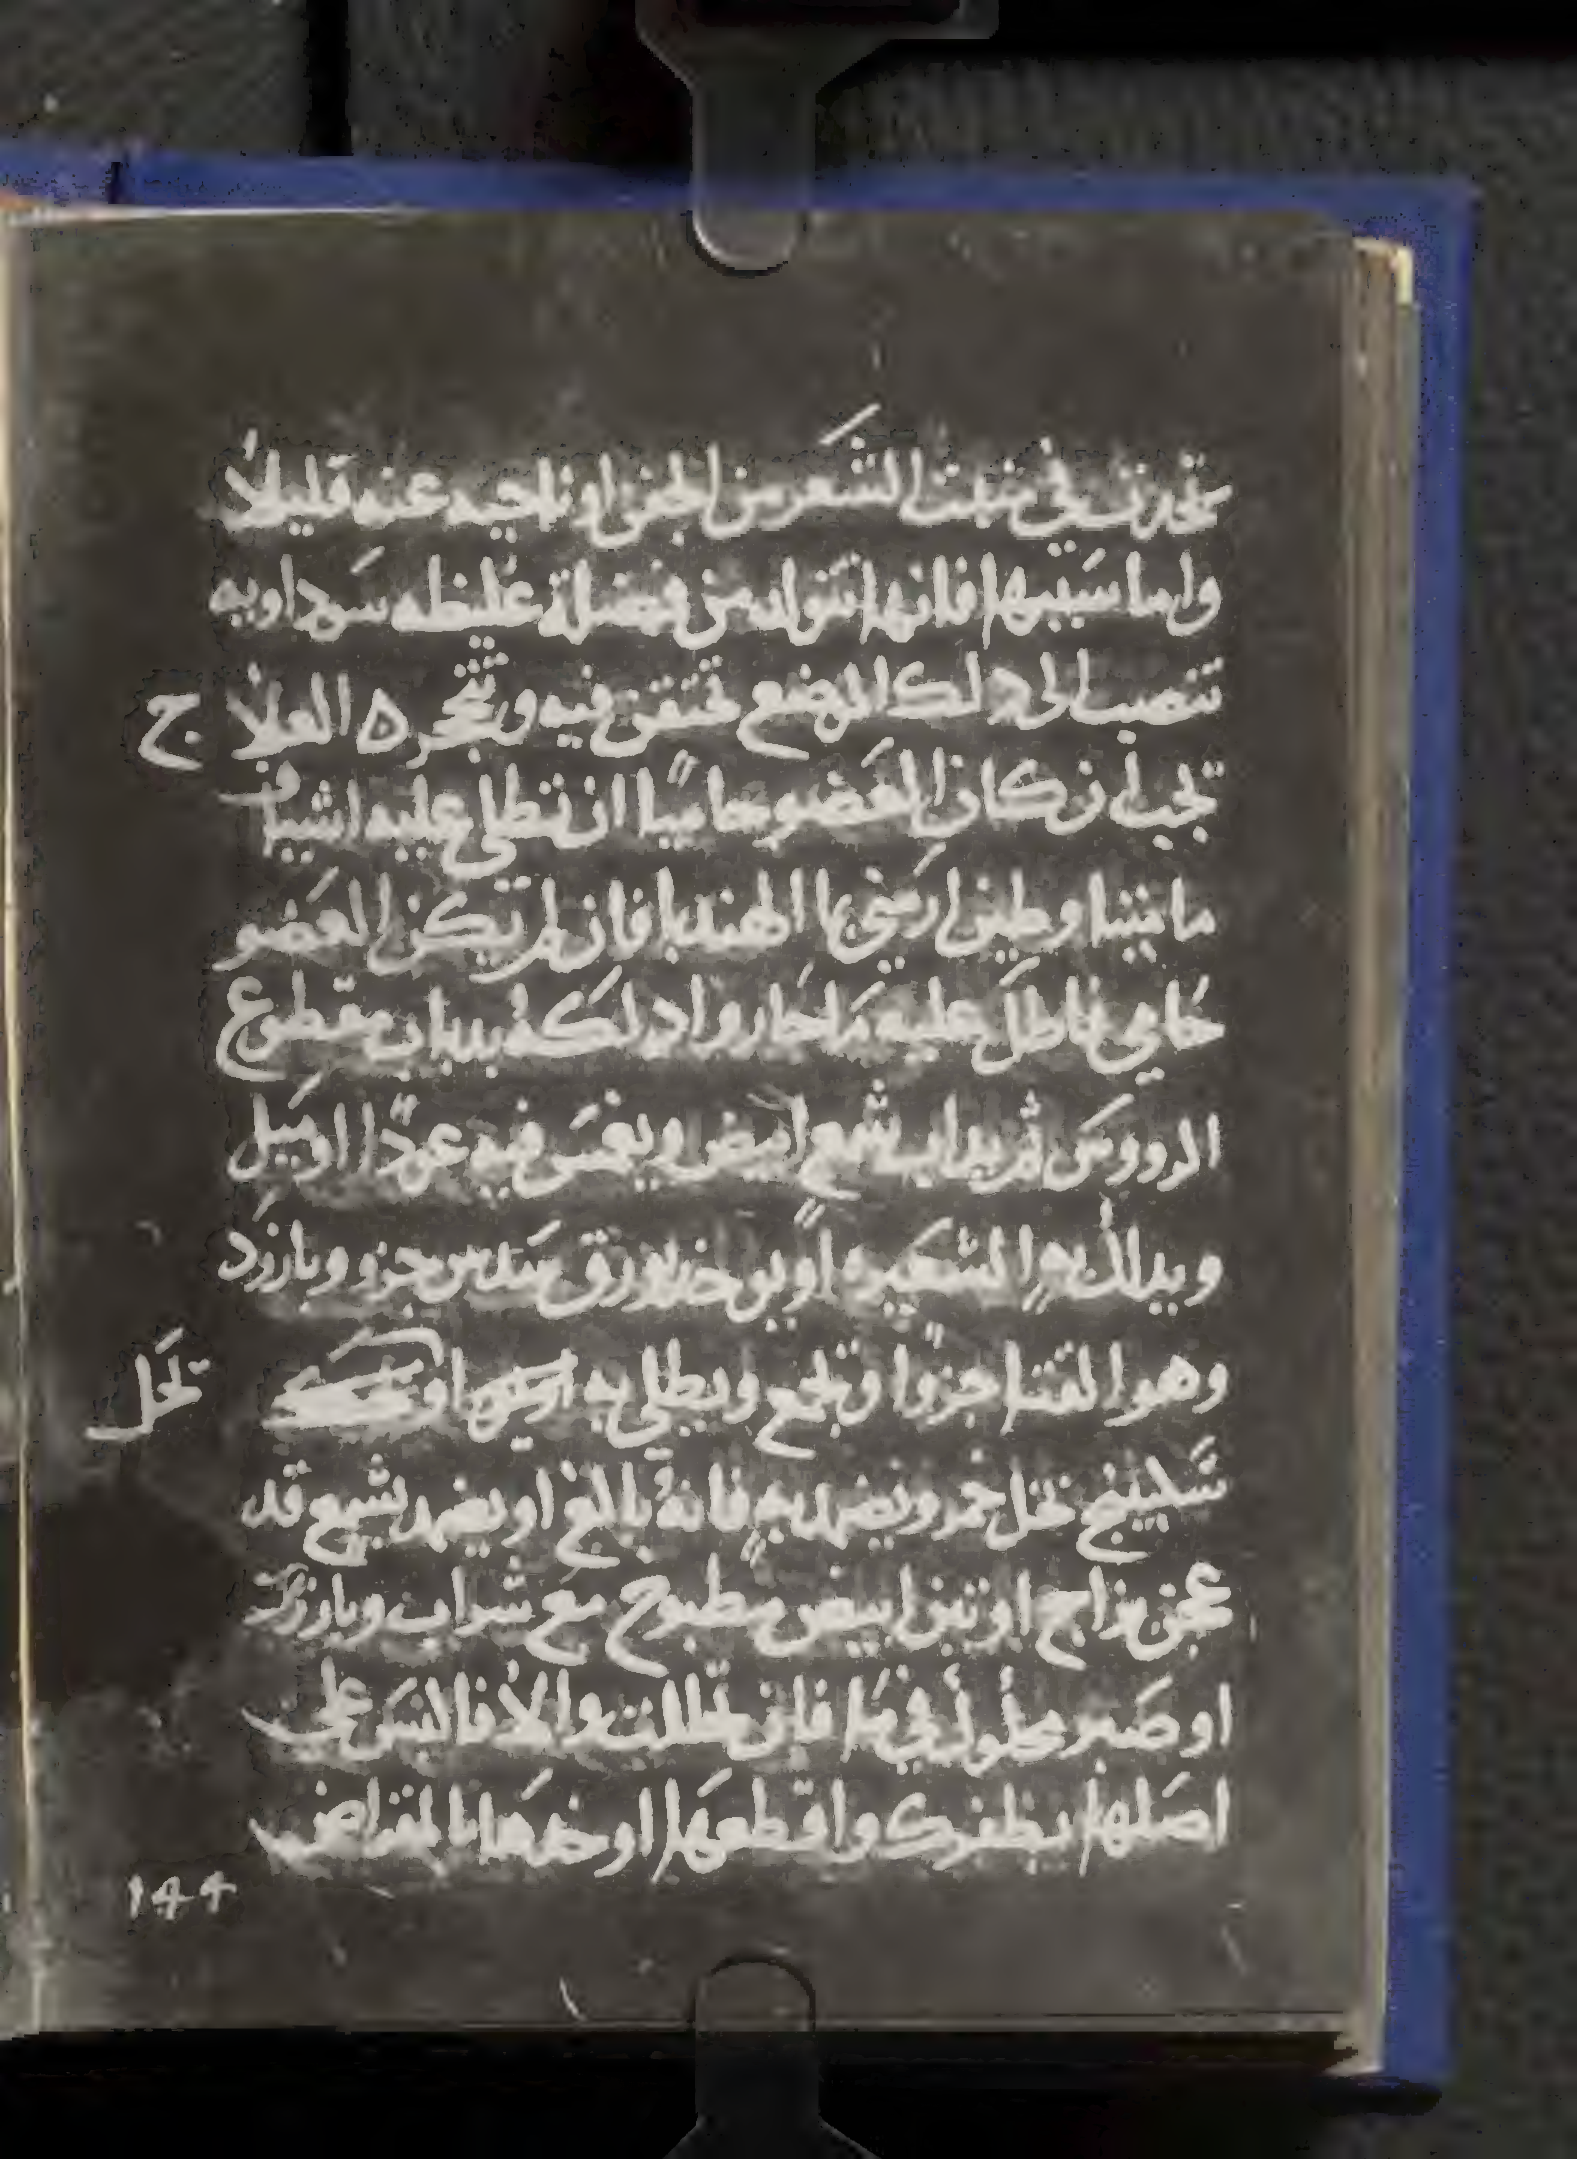 تحدث في منبت الشعر من الجفن او ناحيه عنه قليلاً
واما سببها فانها تتولد من فضلة غليظه سوداويه
تنصب الى ذلك الموضع فتتعفن فيه وتتحجر ه العلاج
تجب ان كان العضو حاميًا ان تطلي عليه اشياف
ماميثا وطين ارمني بما الهندبا فان لم يكن العضو
حامي فاطل عليه ما حار وادلكه بدباب مقطوع
الرووس ثم يداب شمع ابيض ويغمس فيه عودًا او ميل
ويدلك به الشعيره او يوخذ بورق سدس جزو وبارزد
وهو القنا جزوًا وتجمع ويطلي به او تحل
سكبينج بخل خمر ويضمد به فانه بالغ او يضمد بشمع قد
عجن بزاج او تين ابيض مطبوخ مع شراب وبارزد
او صبر محلول في ما فان تحللت والا فالبس على
اصلها بظفرك واقطعها او خدها بالمقراض
١٤٤